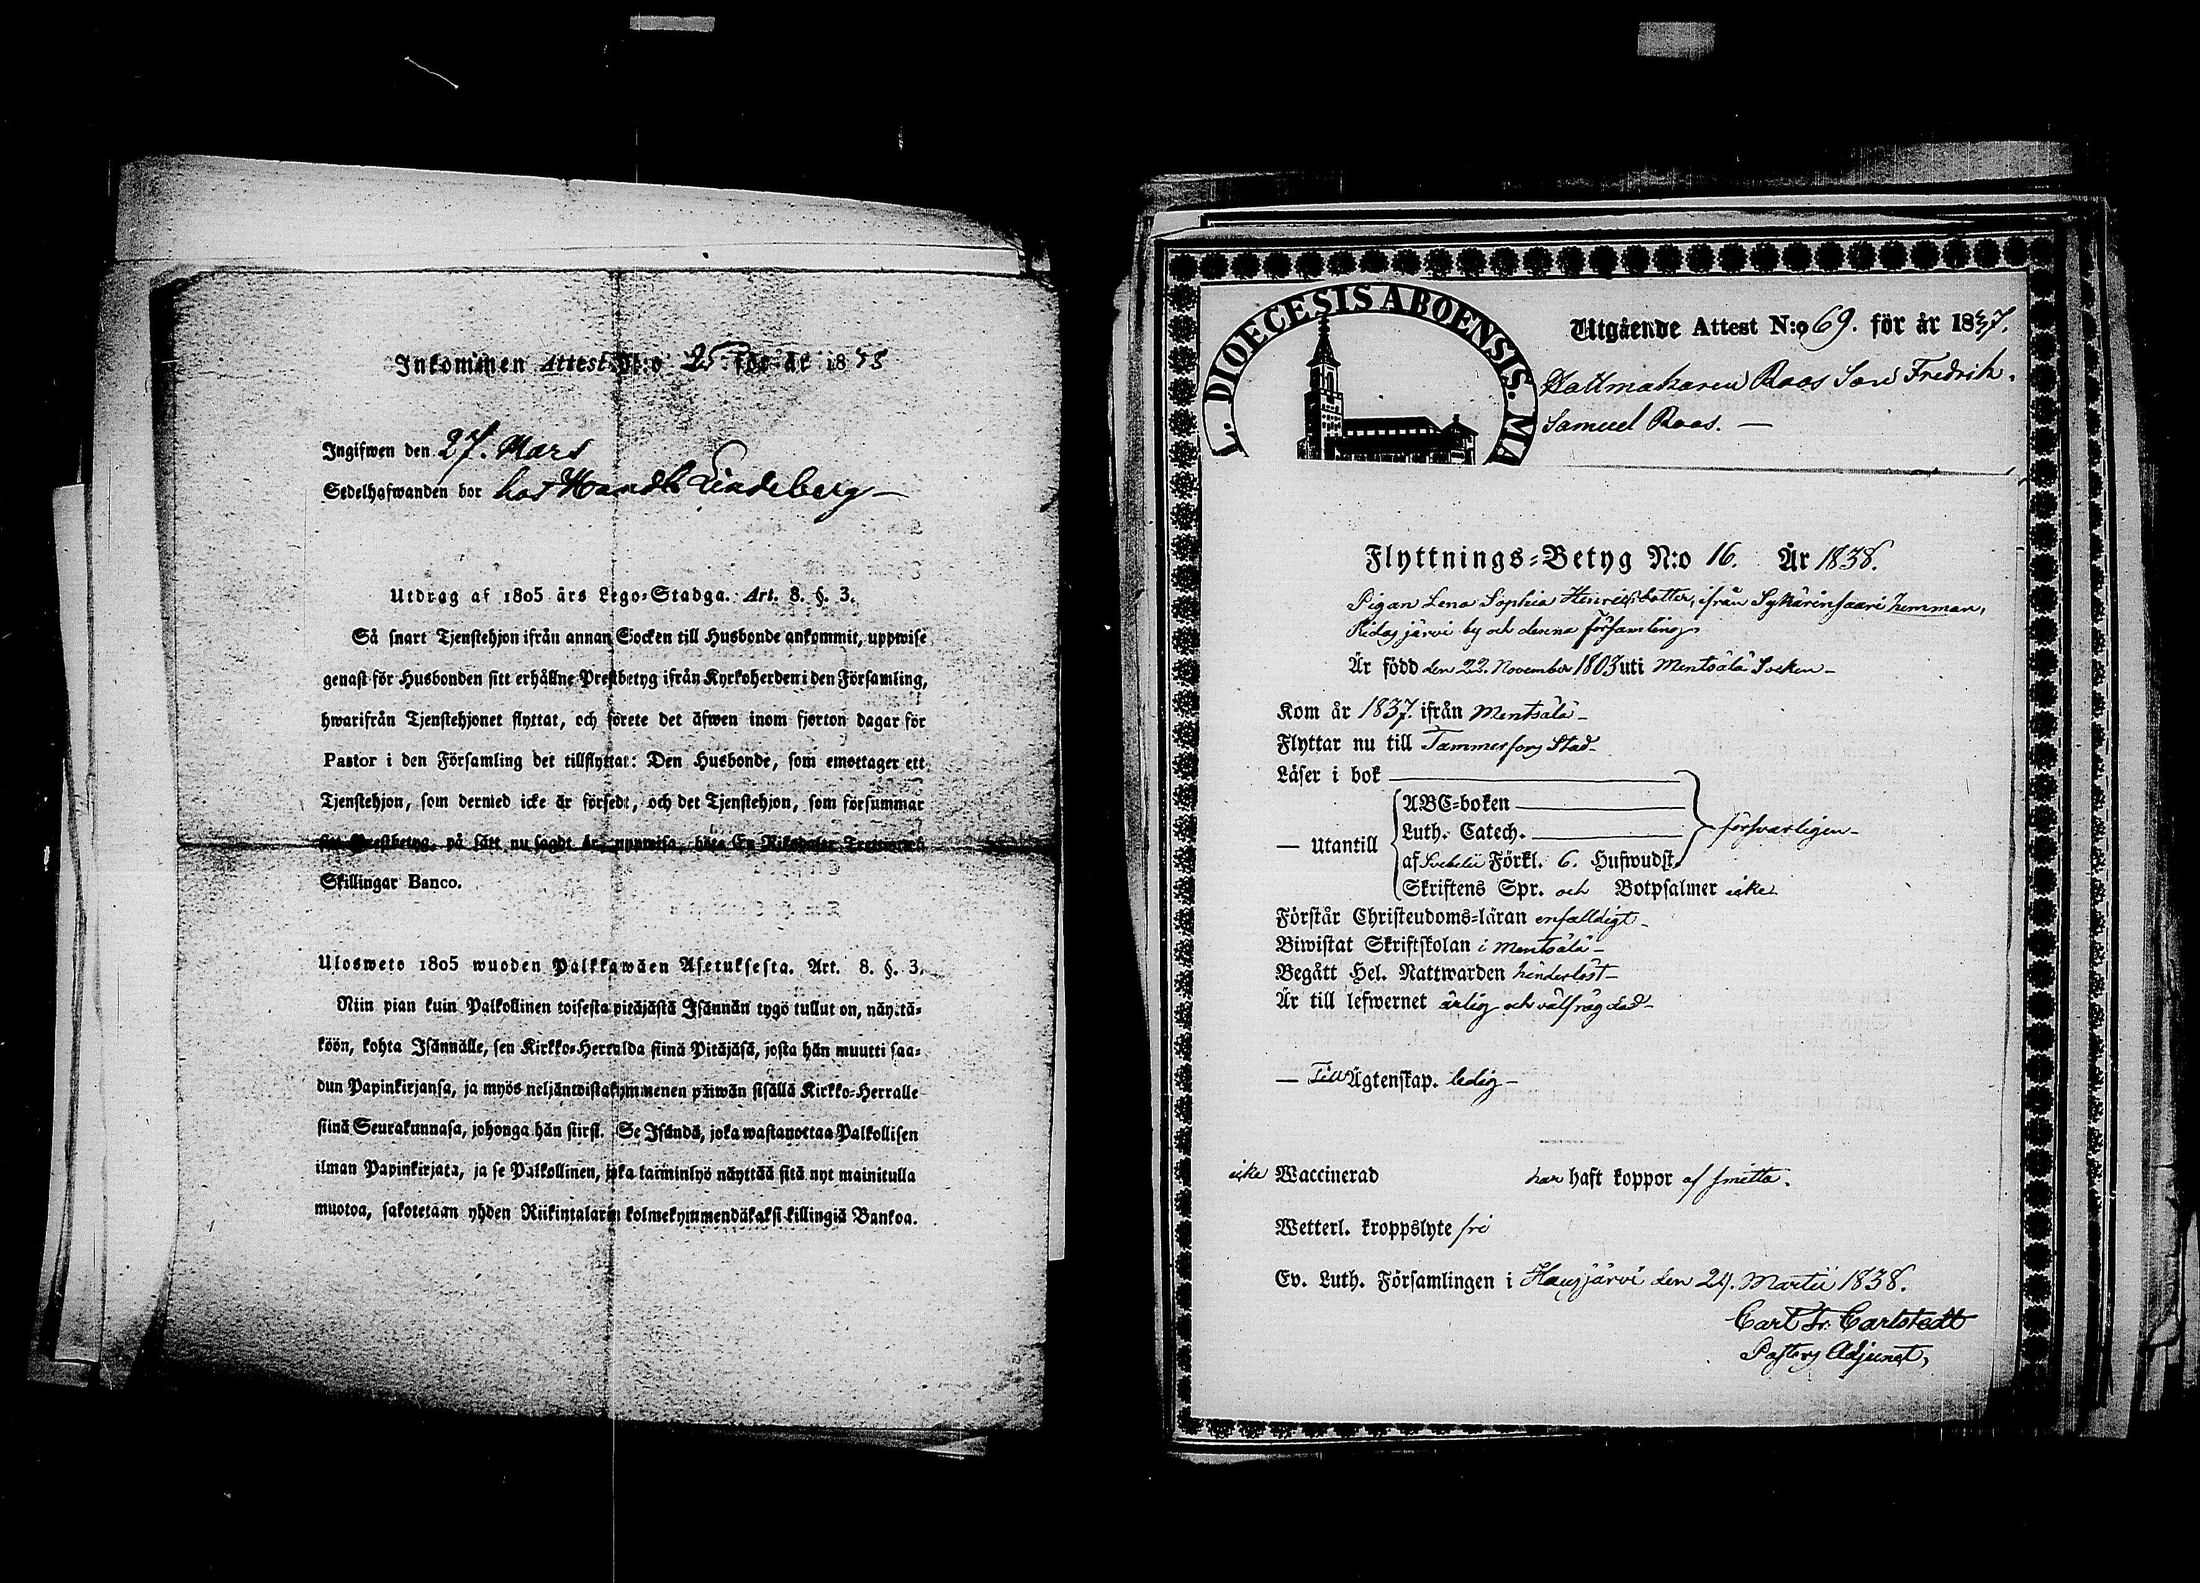 Inkommen Attest N:o 25 för år 1838
Ingifwen den 27. Mars
Sedelhafwanden bor hos Handl. Lindeberg
Utdrag af 1805 års Lego-Stadga. Art. 8. §. 3.
Så snart Tjenstehjon ifrån annan Socken till Husbonde ankommit, uppwise
genast för Husbonden sitt erhållne Prestbetyg ifrån Kyrkoherden i den Församling,
hwarifrån Tjenstehjonet flyttat, och förete det äfwen inom fjorton dagar för
Pastor i den Församling det tillflyttat: Den Husbonde, som emottager ett
Tjenstehjon, som dermed icke är försedt, och det Tjenstehjon, som försummar
sitt Prestbetyg, på sätt nu sagdt är, uppwisa, böta En Riksdaler Trettiotwå
Skillingar Banco.
Ulosweto 1805 wuoden Palkkawäen Asetuksesta. Art. 8. §. 3.
Niin pian kuin Palkollinen toisesta pitäjästä Isännän tygö tullut on, näyttä-
köön, kohta Isännälle, sen Kirkko-Herralda siinä Pitäjäsä, josta hän muutti saa-
dun Papinkirjansa, ja myös neljäntoistakymmenen päiwän sisällä Kirkko-Herralle
siinä Seurakunnasa, johonga hän siirst. Se Isändä, joka wastanottaa Palkollisen
ilman Papinkirjata, ja se Palkollinen, joka laiminlyö näyttää sitä nyt mainitulla
muotoa, sakotetaan yhden Riikintalarin kolmekymmendäkaksi killingiä Bankoa.
L. DIOECESIS ABOENSIS. MA
Utgående Attest N:o 69. för år 1837.
Hattmakaren Roos Son Fredrik
Samuel Roos. —
Flyttnings-Betyg N:o 16. År 1838.
Pigan Lena Sophia Henricsdotter, ifrån Sykärinsaari hemman,
Ridasjärvi by och denna församling
Är född den 22. November 1803 uti Mentsälä Socken —
Kom år 1837. ifrån Mentsälä —
Flyttar nu till Tammerfors Stad —
Läser i bok
— Utantill
ABC-boken
Luth. Catech.
af Svebelii Förkl. 6. Hufwudst.
försvarligen —
Skriftens Spr. och Botpsalmer icke
Förstår Christendoms-läran enfalldigt —
Biwistat Skriftskolan i Mentsälä —
Begått Hel. Nattwarden hinderlöst —
Är till lefwernet ärlig och välfrägdad —
— Till Ägtenskap. ledig —
icke Waccinerad har haft koppor af smitta.
Wetterl. kroppslyte fri
Ev. Luth. Församlingen i Hausjärvi den 24. Martii 1838.
Carl Fr. Carlstedt
Pastors Adjunct,